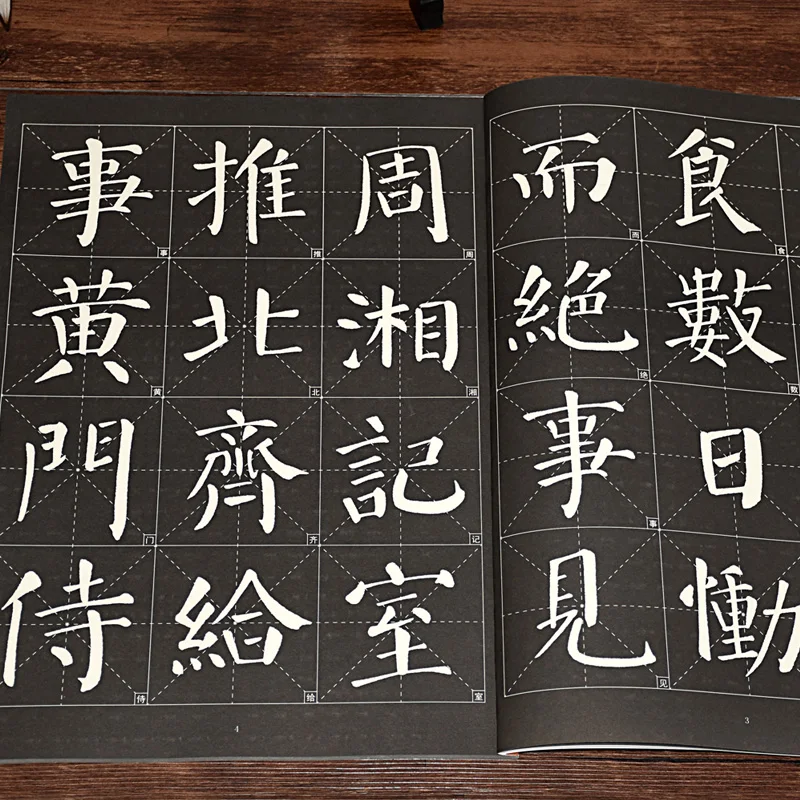 食數日慟
食
数
而絶事見
而
绝
事
见
3
周湘記室
周
湘
记
室
推北齊給
推
北
齐
给
事黄門侍
事
黄
门
侍
4